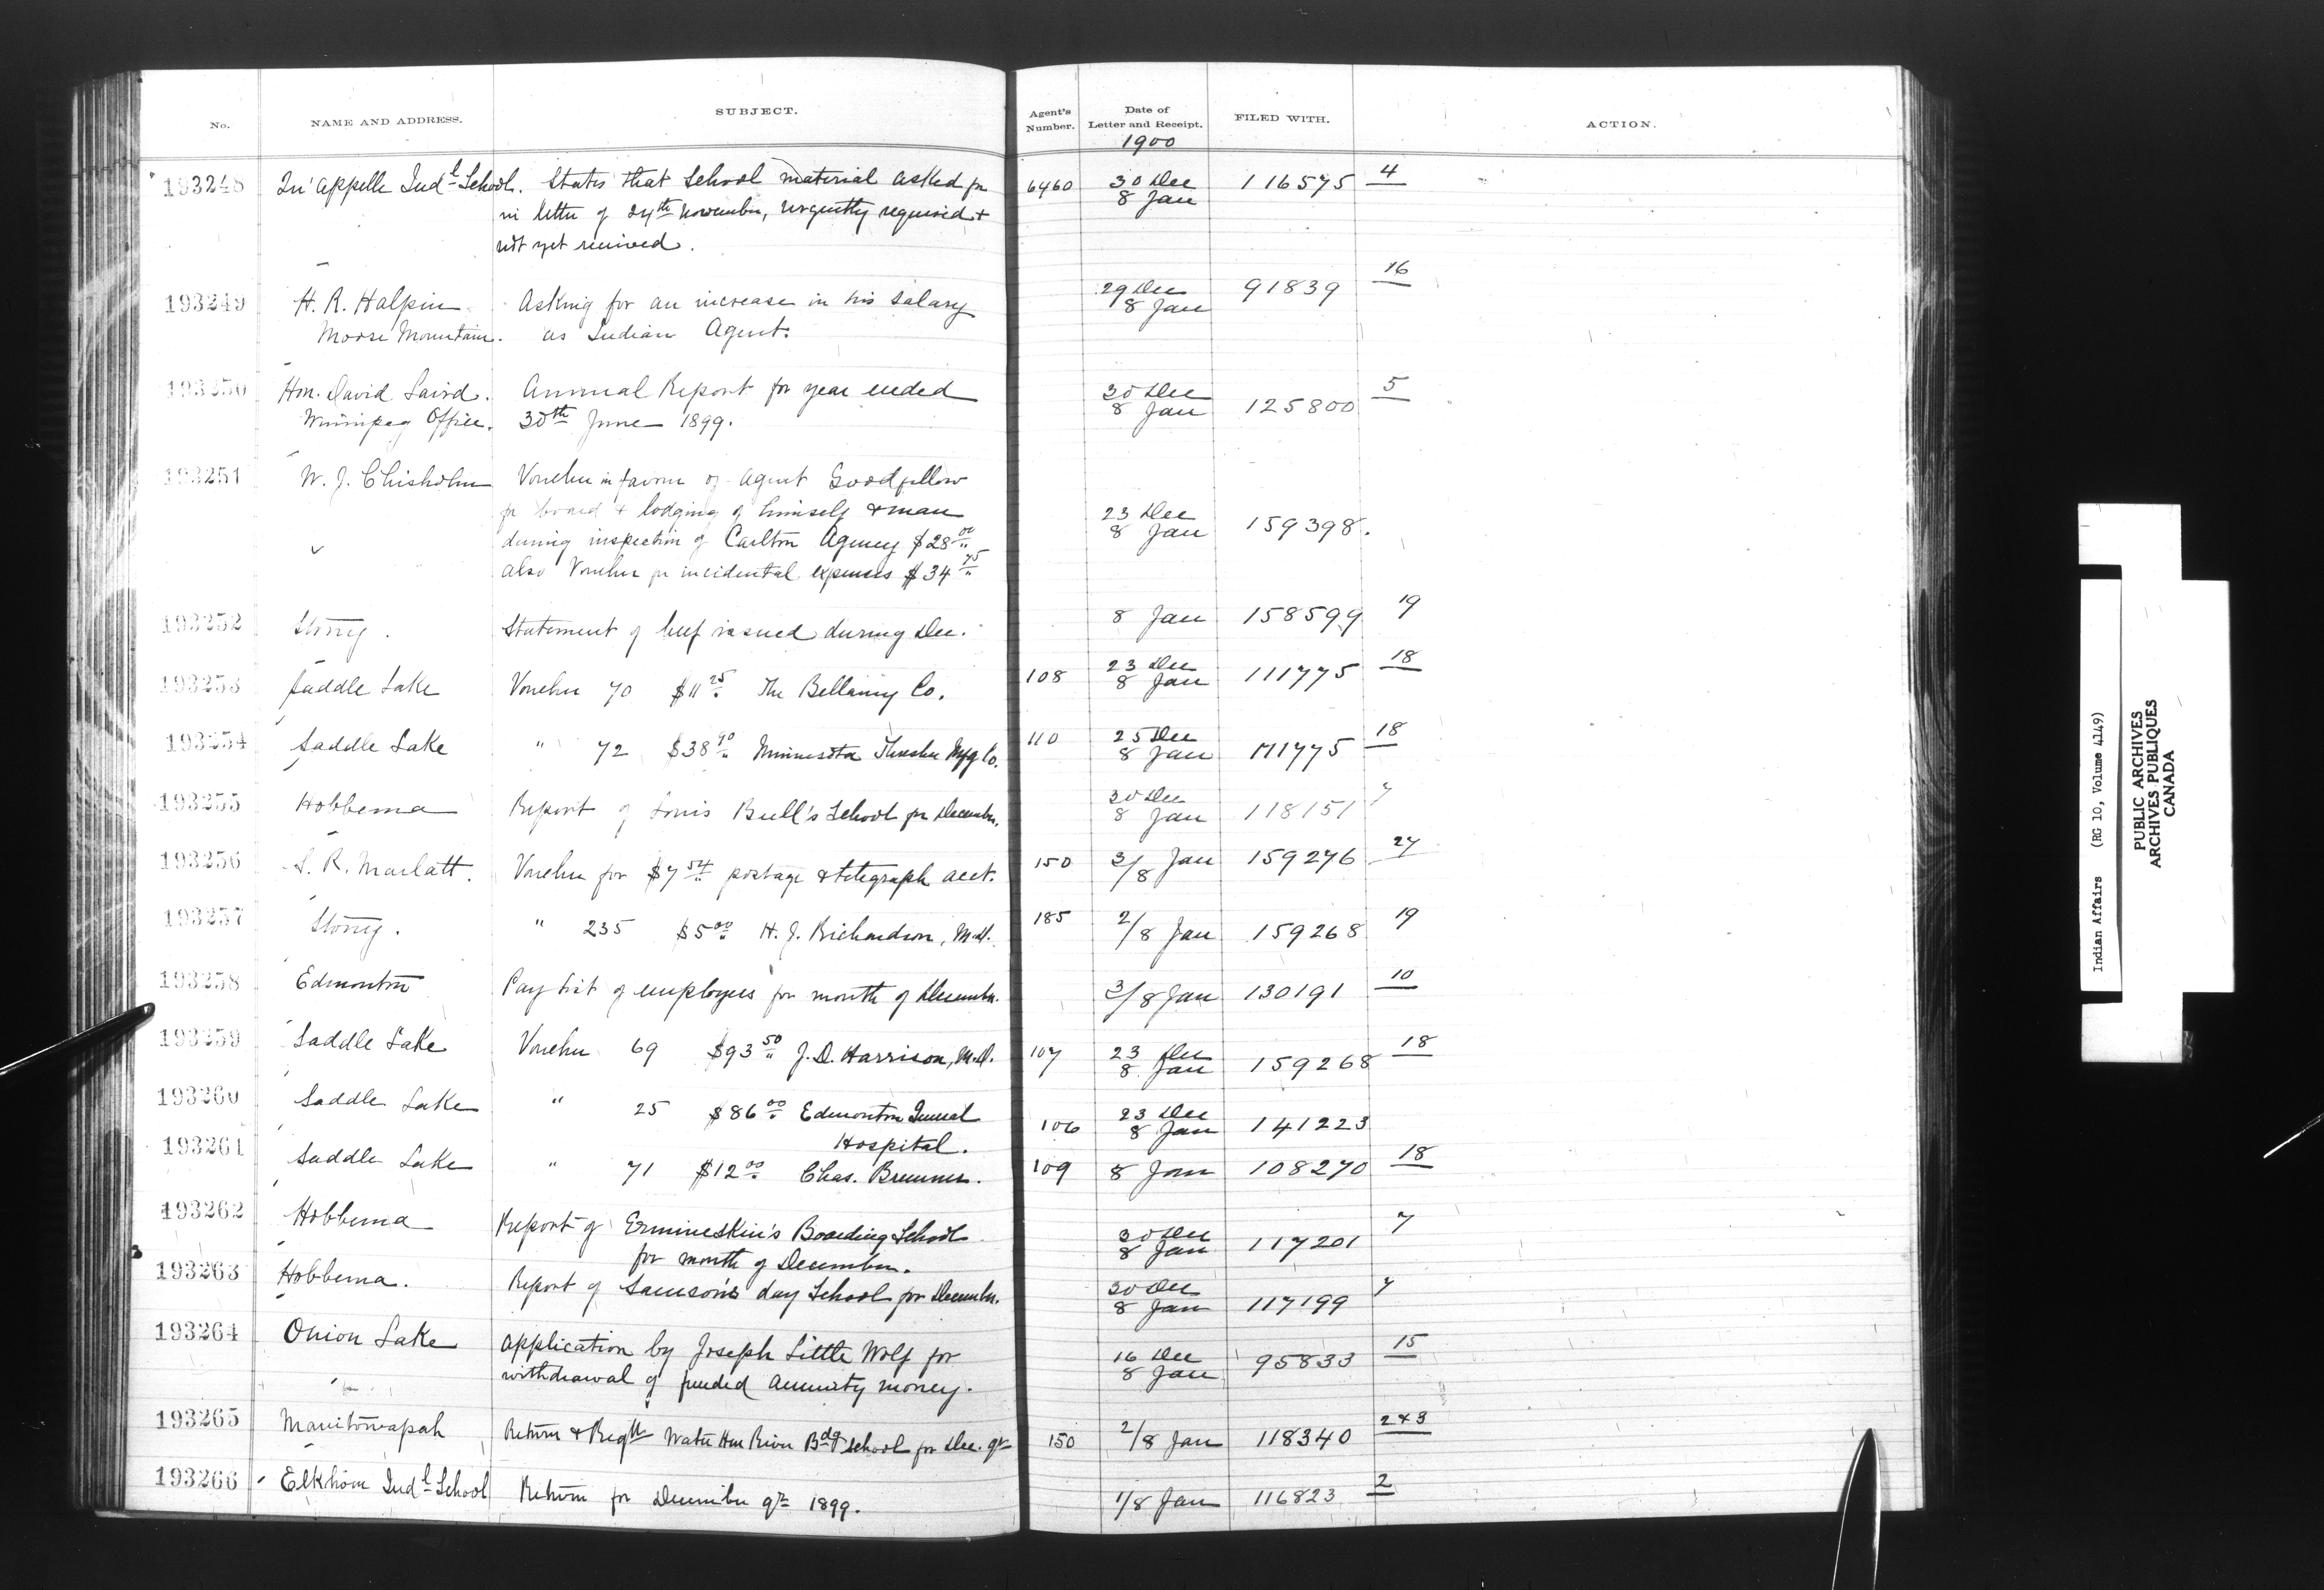 No. NAME AND ADDRESS. SUBJECT. Agent's Number. Date of Letter and Receipt. FILED WITH. ACTION.
1900
193248 Qu'Appelle Indl School. States that School material asked for 6460 30 Dec 116575 4
in letter of 24th November, urgently required + 8 Jan
not yet received.
193249 H. R. Halpin Asking for an increase in his salary 29 Dec 91839 16
Moose Mountain. as Indian Agent. 8 Jan
193250 Hon. David Laird. Annual Report for year ended 30 Dec 125800 5
Winnipeg Office. 30th June 1899. 8 Jan
193251 W. J. Chisholm Voucher in favour of Agent Goodfellow
for board & lodging of himself & man 23 Dec 159398.
during inspection of Carlton Agency $28.00 8 Jan
also Voucher for incidental expenses $34.75
193252 Stony. Statement of beef issued during Dec. 8 Jan 158599 19
193253 Saddle Lake Voucher 70 $11.25 The Bellamy Co. 108 23 Dec 111775 18
8 Jan
193254 Saddle Lake " 72 $38.90 Minnesota Thresher Mfg Co. 110 25 Dec 111775 18
8 Jan
193255 Hobbema Report of Louis Bull's School for December. 30 Dec 118151 7
8 Jan
193256 S. R. Marlatt. Voucher for $7.54 postage & telegraph acct. 150 3/8 Jan 159276 27
193257 Stony. " 235 $5.00 H. J. Richardson, M.D. 185 2/8 Jan 159268 19
193258 Edmonton Pay list of employees for month of December. 3/8 Jan 130191 10
193259 Saddle Lake Voucher 69 $93.50 J. D. Harrison, M.D. 107 23 Dec 159268 18
8 Jan
193260 Saddle Lake " 25 $86.00 Edmonton General 106 23 Dec 141223
Hospital. 8 Jan
193261 Saddle Lake " 71 $12.00 Chas. Bremner. 109 8 Jan 108270 18
193262 Hobbema Report of Ermineskin's Boarding School 30 Dec 117201 7
for month of December. 8 Jan
193263 Hobbema. Report of Samson's day School for December. 30 Dec 117199 7
8 Jan
193264 Onion Lake Application by Joseph Little Wolf for 16 Dec 95833 15
withdrawal of funded annuity money. 8 Jan
193265 Manitowapah Return & Reqtn Water Hen River Bdg School for Dec. qr 150 2/8 Jan 118340 2 & 3
193266 Elkhorn Indl School Return for December qr 1899. 1/8 Jan 116823 2
Indian Affairs (RG 10, Volume 4149)
PUBLIC ARCHIVES
ARCHIVES PUBLIQUES
CANADA